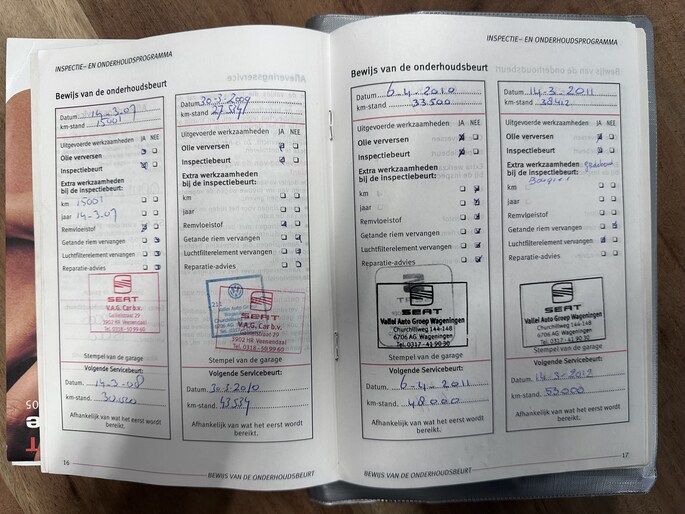 INSPECTIE– EN ONDERHOUDSPROGRAMMA
Bewijs van de onderhoudsbeurt
Datum 14-3-07
km-stand 15001
Uitgevoerde werkzaamheden JA NEE
Olie verversen
Inspectiebeurt
Extra werkzaamheden
bij de inspectiebeurt:
km 15001
jaar 14-3.07
Remvloeistof
Getande riem vervangen
Luchtfilterelement vervangen
Reparatie-advies
SEAT
V.A.G. Car b.v.
3902 HR Veenendaal
Tel. 0318 - 50 99 60
Stempel van de garage
Volgende Servicebeurt:
Datum 14-3-08
km-stand. 30.000
Afhankelijk van wat het eerst wordt
bereikt.
16
Afleveringsservice
Datum 30-3-2009
km-stand 27.534
Uitgevoerde werkzaamheden JA NEE
Olie verversen
Inspectiebeurt
Extra werkzaamheden
bij de inspectiebeurt:
km
jaar
Remvloeistof
Getande riem vervangen
Luchtfilterelement vervangen
Reparatie-advies
Vallei Auto
6706 AG
SEAT
V.A.G. Car b.v.
3902 HR Veenendaal
Tel. 0318 - 50 99 60
Stempel van de garage
Volgende Servicebeurt:
Datum 30.3.2010
km-stand. 43534
Afhankelijk van wat het eerst wordt
bereikt.
BEWIJS VAN DE ONDERHOUDSBEURT
INSPECTIE– EN ONDERHOUDSPROGRAMMA
Bewijs van de onderhoudsbeurt
Datum 6-4-2010
km-stand 33.500
Uitgevoerde werkzaamheden JA NEE
Olie verversen
Inspectiebeurt
Extra werkzaamheden
bij de inspectiebeurt:
km
jaar
Remvloeistof
Getande riem vervangen
Luchtfilterelement vervangen
Reparatie-advies
SEAT
Vallei Auto Groep Wageningen
Churchillweg 144-148
6706 AG Wageningen
Tel. 0317 - 41 90 30
Stempel van de garage
Volgende Servicebeurt:
Datum 6-4-2011
km-stand. 48000
Afhankelijk van wat het eerst wordt
bereikt.
BEWIJS VAN DE ONDERHOUDSBEURT
Datum 14-3-2011
km-stand 38412
Uitgevoerde werkzaamheden JA NEE
Olie verversen
Inspectiebeurt
Extra werkzaamheden
bij de inspectiebeurt:
km
jaar
Remvloeistof
Getande riem vervangen
Luchtfilterelement vervangen
Reparatie-advies
SEAT
Vallei Auto Groep Wageningen
Churchillweg 144-148
6706 AG Wageningen
Tel. 0317 - 41 90 30
Stempel van de garage
Volgende Servicebeurt:
Datum 14-3-2012
km-stand. 53000
Afhankelijk van wat het eerst wordt
bereikt.
17